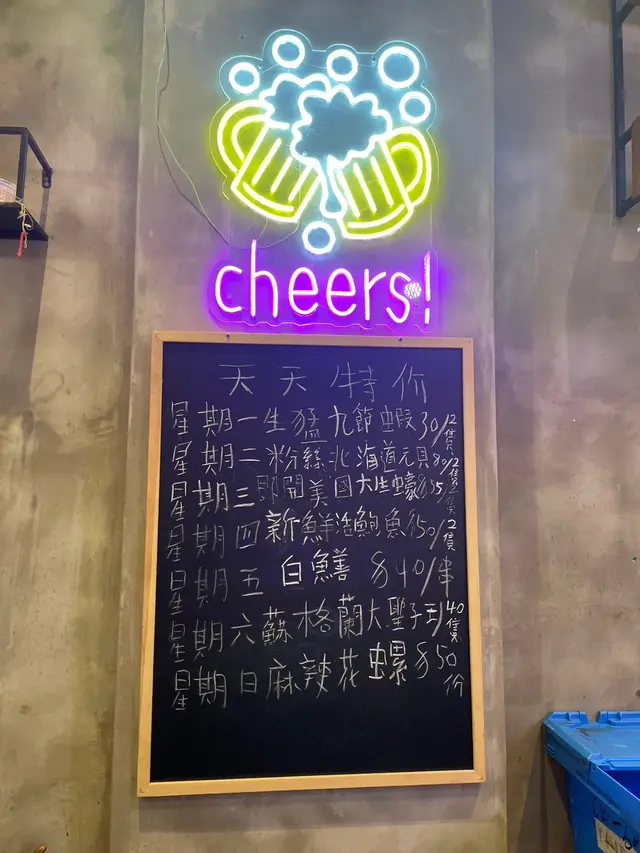 cheers!
天天特价
星期一生猛九節蝦30/12隻
星期二粉絲北海道元貝80/2隻
星期三即開美國大生蠔$35/隻
星期四新鮮活鮑魚$50/2隻
星期五白鱔$40/串
星期六蘇格蘭大聖子王/40隻
星期日麻辣花螺$50份